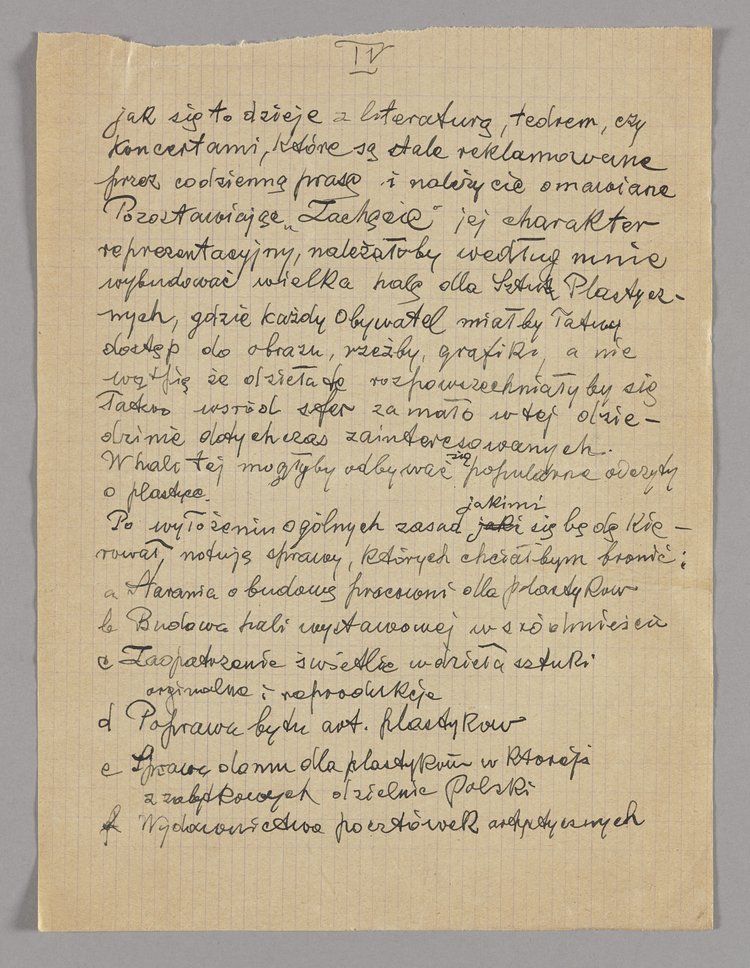 IV
jak się to dzieje z literaturą, teatrem, czy
koncertami, które są stale reklamowane
przez codzienną prasę i należycie omawiane
Pozostawiając „Zachęcie" jej charakter
reprezentacyjny, należałoby według mnie
wybudować wielka halę dla Sztuk Plastycz-
nych, gdzie każdy Obywatel miałby łatwy
dostęp do obrazu, rzeźby, grafiki, a nie
wątpię że dzieła te rozpowszechniałyby się
łatwo wśród sfer za mało w tej dzie-
dzinie dotychczas zainteresowanych.
W hali tej mogłyby odbywać się popularne odczyty
o plastyce.
Po wyłożeniu ogólnych zasad jaki jakimi się będę kie-
rował, notuję sprawy, których chciałbym bronić:
a Starania o budowę pracowni dla plastyków
b Budowa hali wystawowej w śródmieściu
c Zaopatrzenie świetlic w dzieła sztuki
orginalne i reprodukcje
d Poprawa bytu art. plastyków
e Sprawa domu dla plastyków w którejś
z zabytkowych dzielnic Polski
f Wydawnictwo pocztówek artystycznych